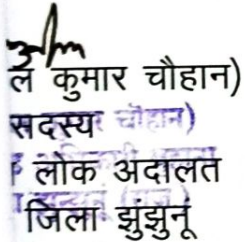 ल कुमार चौहान)
सदस्य चौहान)
लोक अदालत
जिला झुंझुनूं